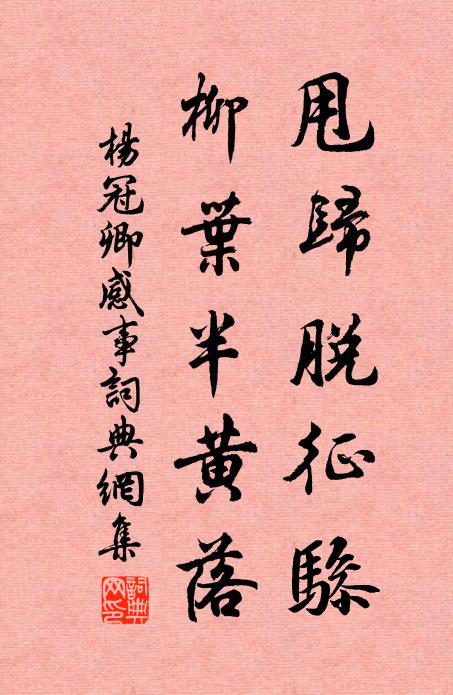 甩歸脫征驂
柳葉半黃落
楊冠卿感事詞典網集
詞典網印